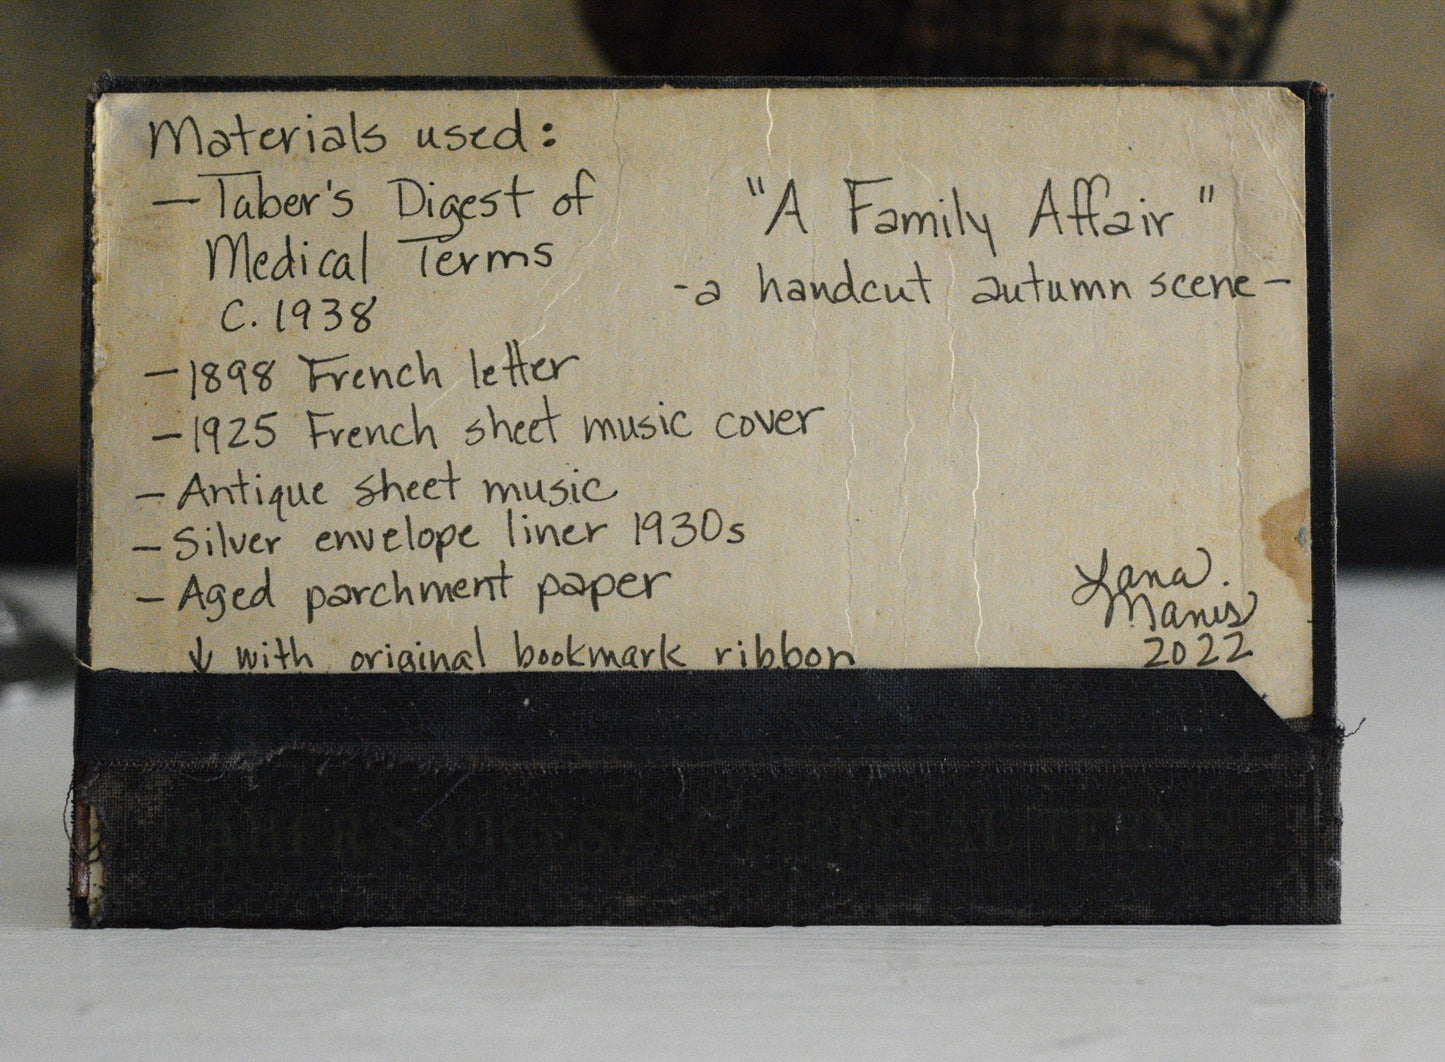 Materials used:
— Taber's Digest of
Medical Terms
C. 1938
— 1898 French letter
— 1925 French sheet music cover
— Antique sheet music
— Silver envelope liner 1930s
— Aged parchment paper
↓ with original bookmark ribbon
"A Family Affair"
- a handcut autumn scene -
Lana
Manis
2022
TABER'S DIGEST OF MEDICAL TERMS